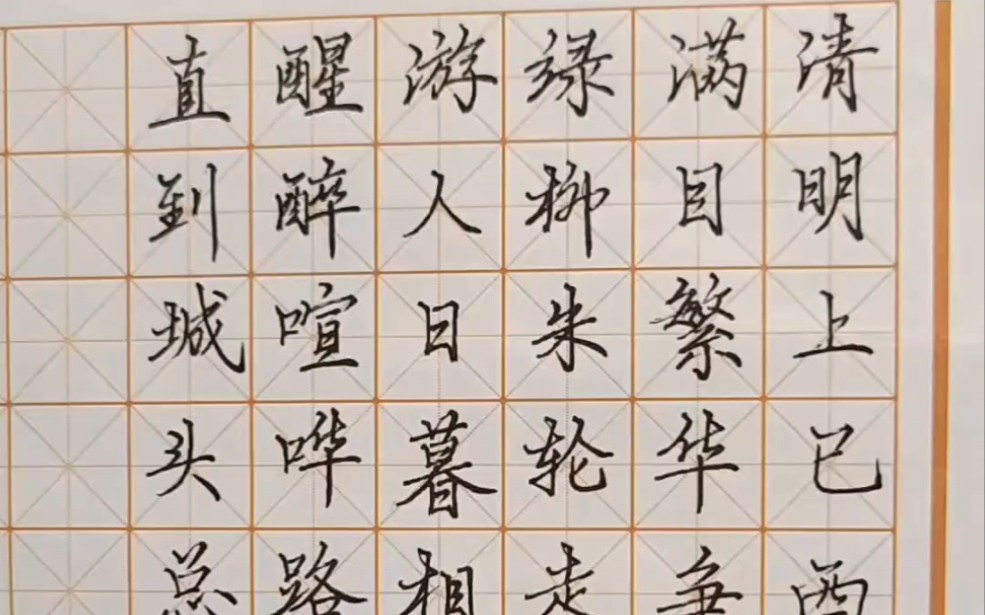 清明上巳西
满目繁华争
绿柳朱轮走
游人日暮相
醒醉喧哗路
直到城头总